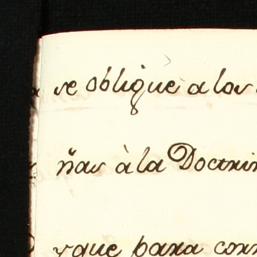 se obligue à los
ñas à la Doctrin
y que para con